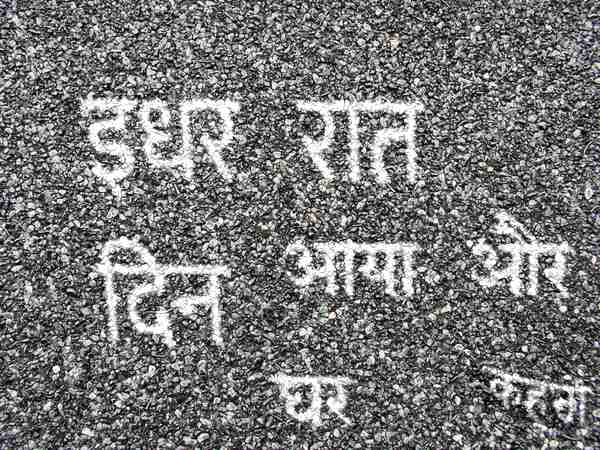 इधर रात
दिन आया और
घर